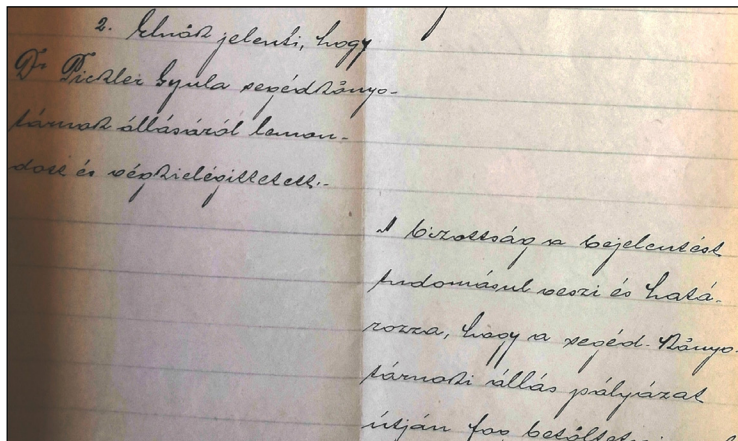 2. Elnök jelenti, hogy
Dr Pickler Gyula segédköny-
tárnok állásáról lemon-
dott és végkielégíttetett.-
A bizottság a bejelentést
tudomásul veszi és hatá-
rozza, hogy a segéd-köny-
tárnoki állás pályázat
útján fog betöltetni